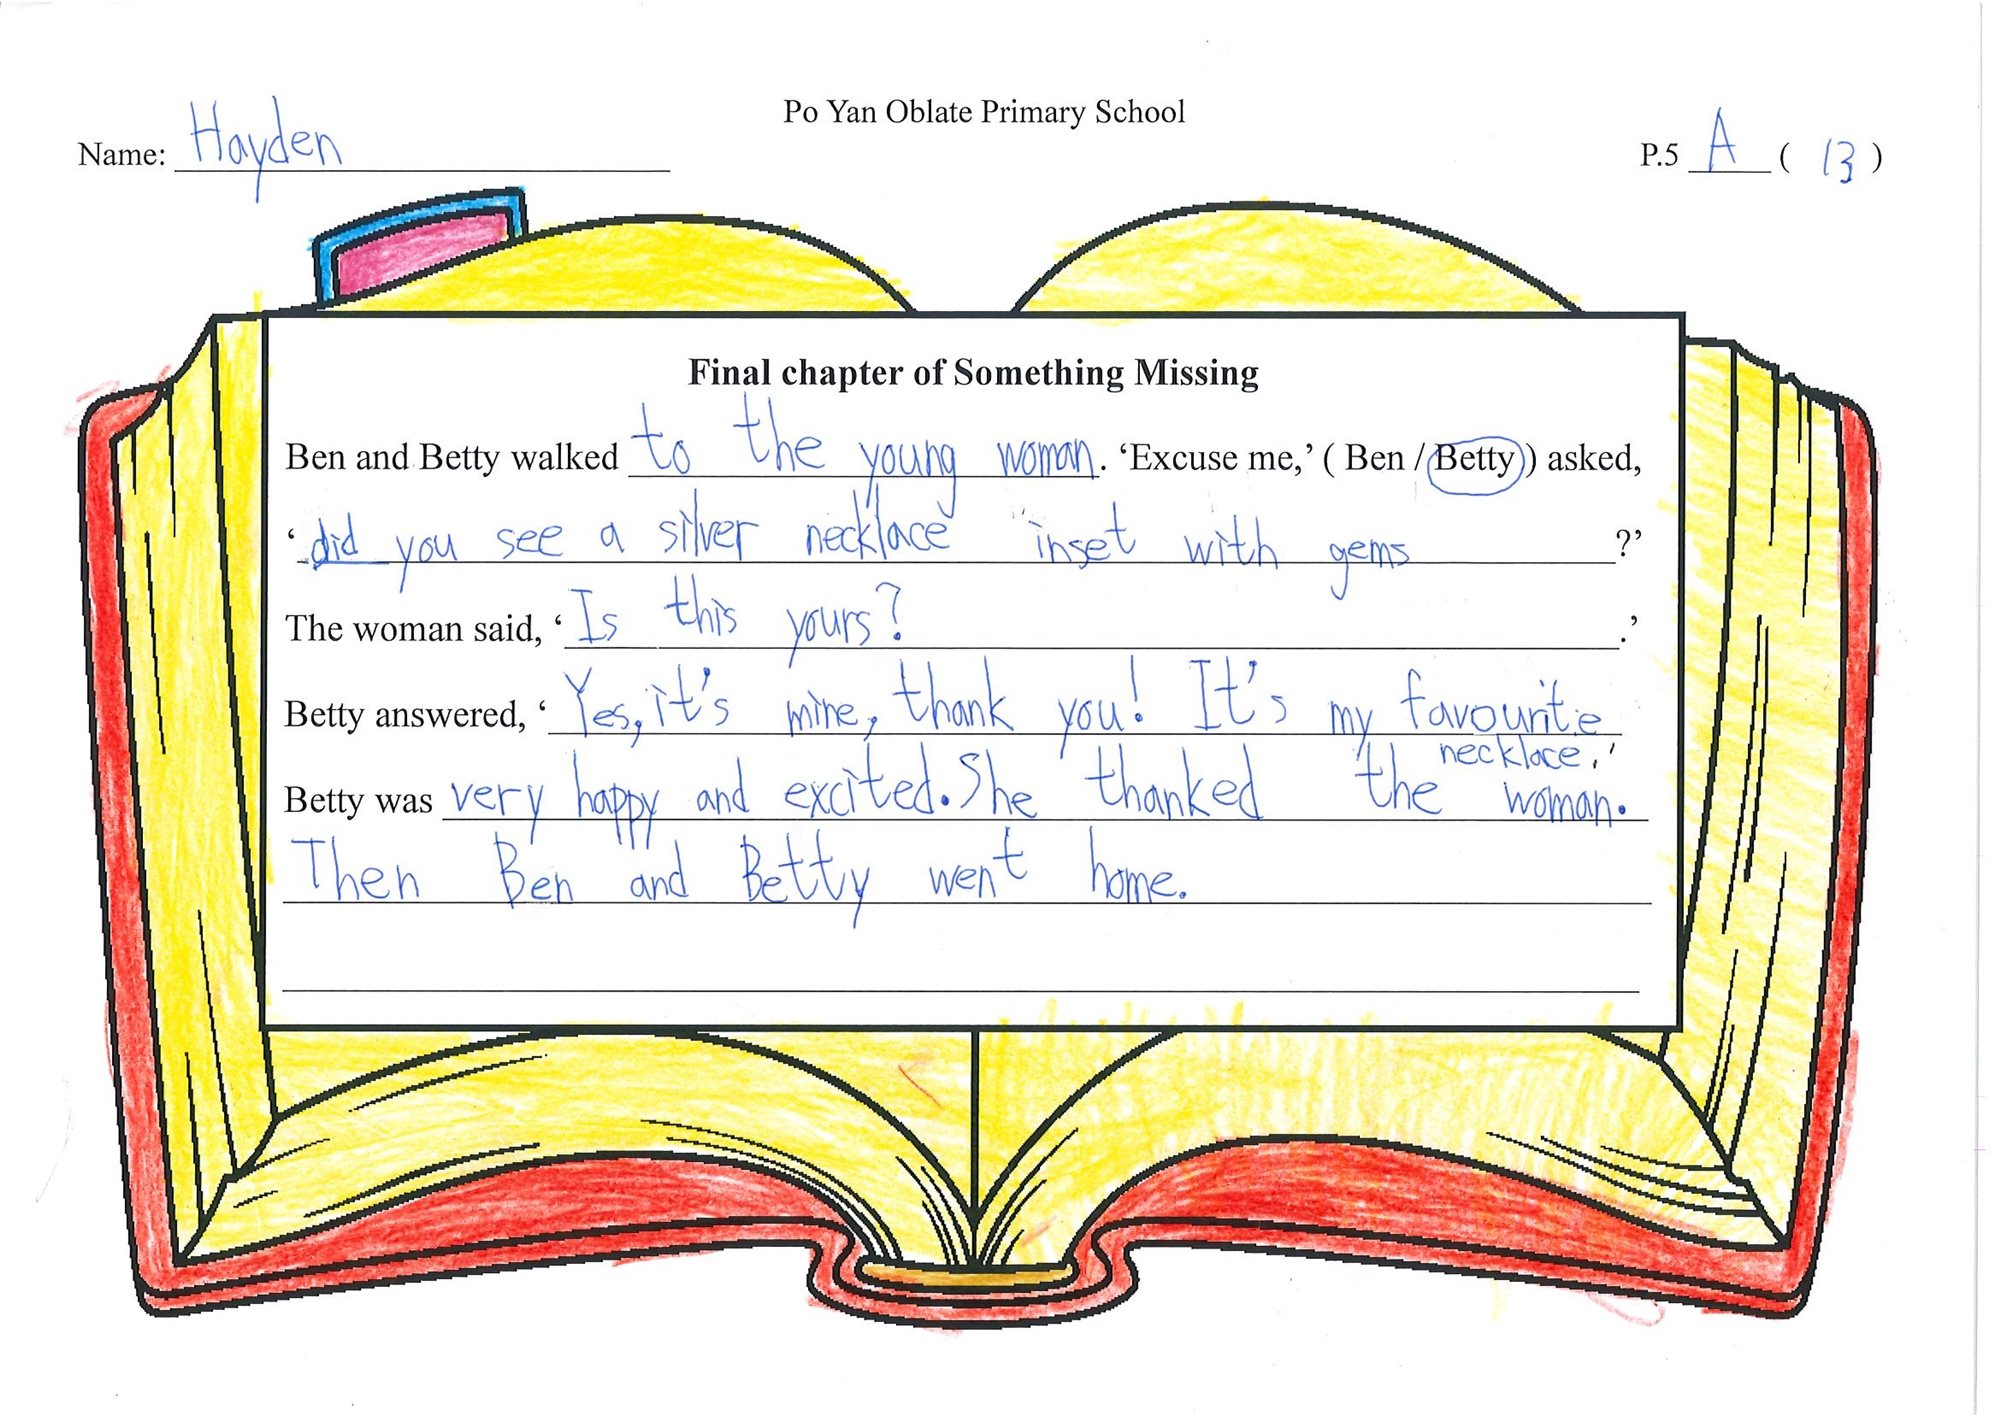 Po Yan Oblate Primary School
Name: Hayden P.5 A ( 13 )
Final chapter of Something Missing
Ben and Betty walked to the young woman. ‘Excuse me,’ ( Ben / Betty ) asked,
‘did you see a silver necklace inset with gems ?’
The woman said, ‘Is this yours? .’
Betty answered, ‘Yes, it's mine, thank you! It's my favourite
necklace.’
Betty was very happy and excited. She thanked the woman.
Then Ben and Betty went home.